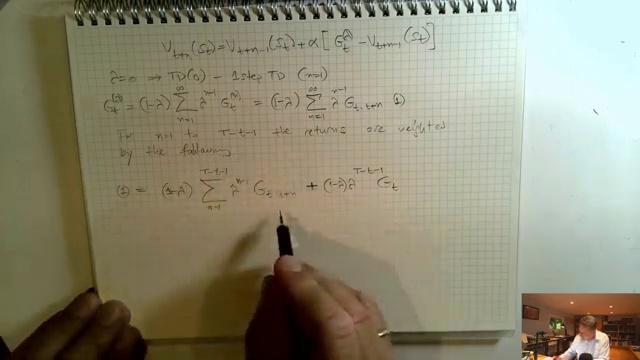 V_{t+n}(S_t) = V_{t+n-1}(S_t) + α [ G_t^λ - V_{t+n-1}(S_t) ]
λ=0 → TD(0) - 1 step TD (n=1)
G_t^{(λ)} = (1-λ) ∑_{n=1}^{∞} λ^{n-1} G_t^{(n)} = (1-λ) ∑_{n=1}^{∞} λ^{n-1} G_{t,t+n} ①
For n=1 to T-t-1 the returns are weighted
by the following
① = (1-λ) ∑_{n=1}^{T-t-1} λ^{n-1} G_{t,t+n} + (1-λ) λ^{T-t-1} G_t